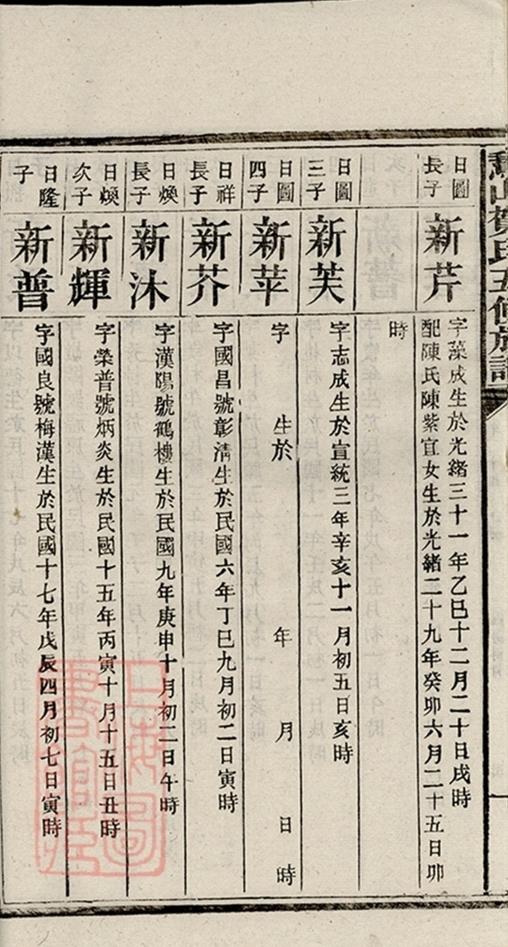 山賀氏五修族譜
日圖長子
新芹
字藻成生於光緒三十一年乙巳十二月二十日戌時
配陳氏陳紫宜女生於光緒二十九年癸卯六月二十五日卯
時
日圖三子
新芙
字志成生於宣統三年辛亥十一月初五日亥時
日圖四子
新苹
字 生於 年 月 日 時
日祥長子
新芥
字國昌號彰清生於民國六年丁巳九月初二日寅時
日煥長子
新沐
字漢陽號鶴樓生於民國九年庚申十月初二日午時
日煥次子
新輝
字榮普號炳炎生於民國十五年丙寅十月十五日丑時
日隆子
新普
字國良號梅漢生於民國十七年戊辰四月初七日寅時
上海圖書館藏